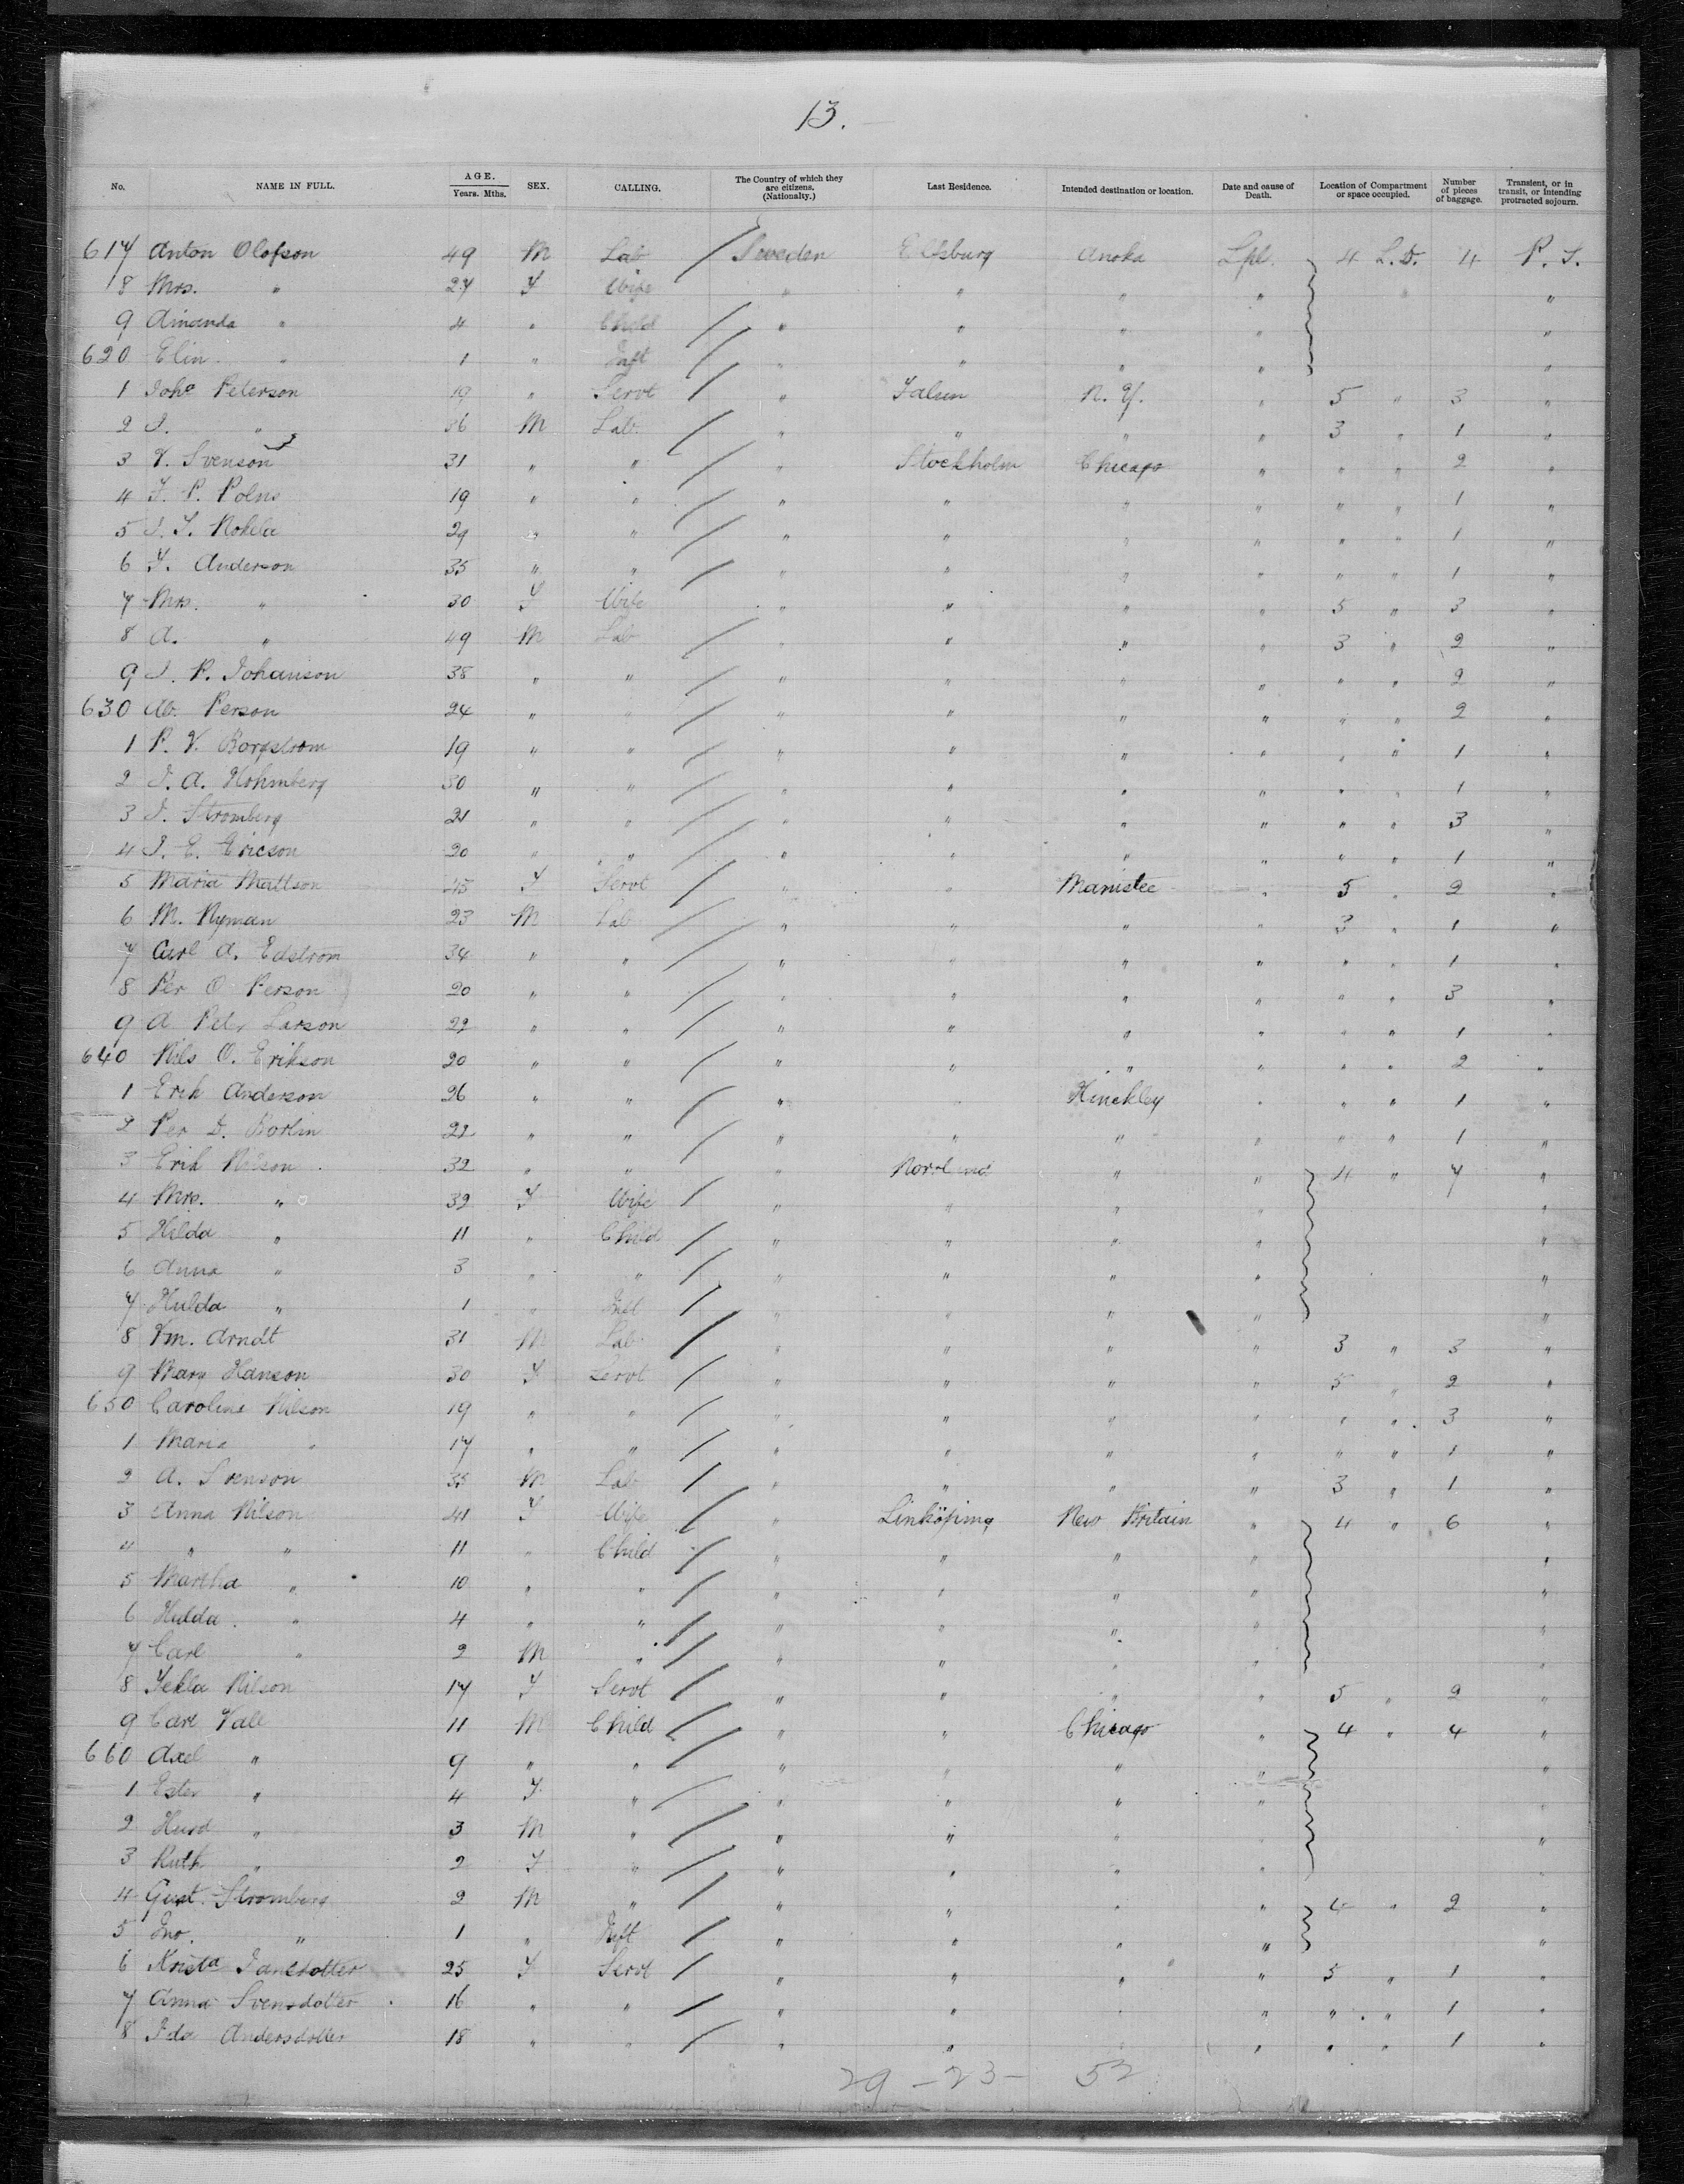 13.
No. NAME IN FULL. AGE. Years. Mths. SEX. CALLING. The Country of which they are citizens. (Nationalty.) Last Residence. Intended destination or location. Date and cause of Death. Location of Compartment or space occupied. Number of pieces of baggage. Transient, or in transit, or intending protracted sojourn.
617 Anton Olofson 49 M Lab Sweden Elfsburg Anoka Lpl. 4 L.D. 4 P. S.
8 Mrs. " 27 F Wife " " " " "
9 Amanda " 4 " Child " " " " "
620 Elin " 1 " Inft " " " " "
1 Joha Peterson 19 " Servt " Falun N. Y. " 5 " 3 "
2 J. " 36 M Lab. " " " " 3 " 1 "
3 V. Svenson 31 " " " Stockholm Chicago " " " 2 "
4 F. P. 19 " " " " " " " " 1 "
5 29 " " " " " " " " 1 "
6 F. Anderson 35 " " " " " " " " 1 "
7 Mrs. " 30 F Wife " " " " 5 " 3 "
8 A. " 49 M Lab " " " " 3 " 2 "
9 J. P. Johanson 38 " " " " " " " " 2 "
630 Ab. Person 24 " " " " " " " " 2 "
1 P. V. Borgstrom 19 " " " " " " " " 1 "
2 J. A. Hohmberg 30 " " " " " " " " 1 "
3 J. Stromberg 21 " " " " " " " " 3 "
4 J. E. Ericson 20 " " " " " " " " 1 "
5 Maria Mattson 45 F Servt " " Manistee " 5 " 2 "
6 M. Nyman 23 M Lab " " " " 3 " 1 "
7 Carl A. Edstrom 34 " " " " " " " " 1 "
8 Per O Person 20 " " " " " " " " 3 "
9 A Peter Larson 22 " " " " " " " " 1 "
640 Nils O. Erikson 20 " " " " " " " " 2 "
1 Erik Anderson 26 " " " " Hinckley " " " 1 "
2 Per D. Borlin 22 " " " " " " " " 1 "
3 Erik Nilson 32 " " " Norrland " " 4 " 7 "
4 Mrs. " 32 F Wife " " " " "
5 Hilda " 11 " Child " " " " "
6 Anna " 3 " " " " " " "
7 Hulda " 1 " Inft " " " " "
8 Vm. Arndt 31 M Lab " " " " 3 " 3 "
9 Mary Hanson 30 F Servt " " " " 5 " 2 "
650 Caroline Nilson 19 " " " " " " " " 3 "
1 Maria " 17 " " " " " " " " 1 "
2 A. Svenson 35 M Lab " " " " 3 " 1 "
3 Anna Nilson 41 F Wife " Linköping New Britain " 4 " 6 "
4 " " 11 " Child " " " " "
5 Martha " 10 " " " " " " "
6 Hulda " 4 " " " " " " "
7 Carl " 2 M " " " " " "
8 Tekla Nilson 17 F Servt " " " " 5 " 2 "
9 Carl Vall 11 M Child " " Chicago " 4 " 4 "
660 Axel " 9 " " " " " " "
1 Ester " 4 F " " " " " "
2 " 3 M " " " " " "
3 Ruth " 2 F " " " " " "
4 Gust. Stromberg 2 M " " " " " 4 " 2 "
5 Jno. " 1 " Inft " " " " "
6 Krista Jansdotter 25 F Servt " " " " 5 " 1 "
7 Anna Svensdotter 16 " " " " " " " " 1 "
8 Ida Andersdotter 18 " " " " " " " " 1 "
29 - 23 - 52